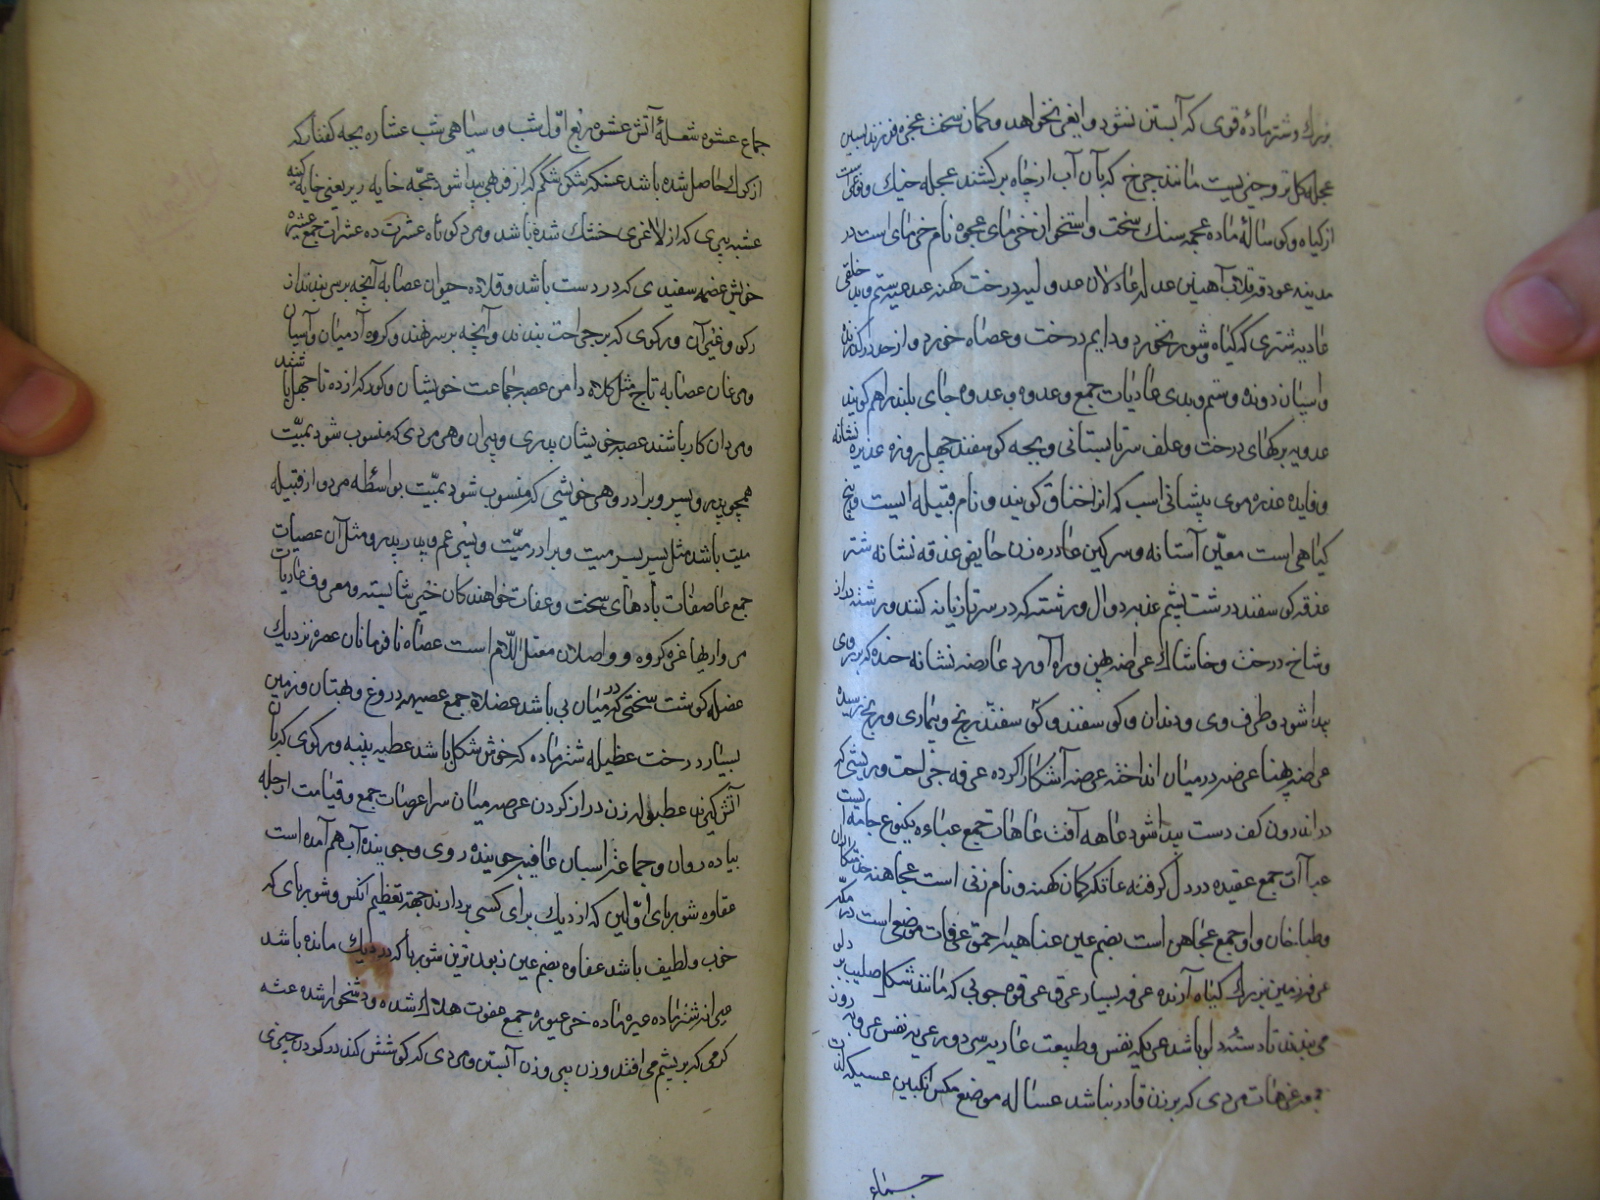 بزرك و شتر ماده قوی که آبستن نشود و ایغی نخواهد و کمان سخت عجزه فرزند پسین
عجله کل تر و چیزیست مانند چرخ که بآن آب از چاه برکشند عجله خیك و نوعی است
از گیاه و کوسالۀ ماده عجمه سنك سخت و استخوان خرمای عجوه نام خرمای است در
مدینه عودقه قلاب آهنین عدله عادلان عدولیه درخت کهنه عدمیه ستم و بد خلقی
عادیه شتری که گیاه شور نخورد و دایم درخت و عصاه خورد و از حد درگذرنده
و اسپان دونده و ستم و بدی عادیات جمع و عدوه و عدوه جای بلند را هم کویند
عدویه برکهای درخت و علف سر تابستانی و بچه کوسفند چهل روزه عذیره نشانه
و فایده عذره موی پیشانی اسب که انرا خناق کویند و نام قبیله ایست و پنج
کیاهی است معیّن آستانه و سرکین عاذره زن حایض عذقه نشانه شتر
عذقه کوسفند درشت پشم عذبه دوال و رشته که در سر تازیانه کنند و رشته دراز
و شاخ درخت و خاشاك عراضه پهن و راه آورد عارضه نشانه خنده که بر روی
پیدا شود و طرف وی و دندان و کوسفند و کوسفند رنج و بیماری و رنج رسیده
عرضه پهنا عرضه در میان انداخته عرضه آشکارا کرده عرفه جراحت و ریشی که
در اندرون کف دست پیدا شود عاهه آفت عاهات جمع عباءه یکنوع جامه ایست
عباآت جمع عقیده در دل گرفته عاتکه کمان کهنه و نام زنی است عجاهنه خدمتکاران
و طباخان و او جمع عجاهن است بضم عین عناهیه احمق عرفات موضعی است در مکّه
عرفه زمین بزرك گیاه آرنده عرفه بسیار عرق عرقوه چوبی که مانند شکل صلیب بر دلو
می بندند تا دسته دلو باشد عریکه نفس و طبیعت عاریه سی دور عریه نفس عروبه روز
جمعه عزهات مردی که بر زن قادر نباشد عساله موضع مکس انکبین عسیله لذت
جماع
جماع عشوه شعلۀ آتش عشوه ربع اوّل شب و سیاهی شب عشاره بچه کفتار که
از کرك حاصل شده باشد عسکه شکن شکم که از فربهی پیدا شود عجّه خایه ریز یعنی خایه کینه
عشبه پیری که از لاغری خشك شده باشد و مرد کوتاه عشرت ده عشرات جمع عشیره
خویش عصمه سفیدی که در دست باشد و قلاده حیوان عصابه آنچه بر سر بندند از
رکو و غیر آن و رکوی که بر جراحت بندند و آنچه بر سر نهند و کروه آدمیان و آسیان
و مرغان عصابه تاج مثل کلاه دامن عصبه جماعت خویشان و کود که از ده تا چهل باشد
و مردان کار باشند عصبه خویشان پدری و پیران و هر مردی که منسوب شود بمیّت
همچو پدر و پسر و برادر و هر خویشی که منسوب شود بمیّت بواسطه مرد و از قبیله
میت باشد مثل پسر پسر میت و برادر میّت و پسر عم و پدر پدر و مثل آن عصبات
جمع عاصفات بادهای سخت و عفات خواهندکان خیر شایسته و معروف عادیات
مرواریدها غره کروه و واصلان مقتل اللّهم است عصاه نافرمانان عصره نزدیك
عضله کوشت سختی که در میان پی باشد عضلات جمع عضیهه دروغ و بهتان و زمین
بسیار درخت عظیله شتر ماده که خوش شکل باشد عطبه پنبه و رکوی که بآن
آتش کیرند عطبوله زن دراز کردن عرصه میان سرا عرصات جمع و قیامت اجله
پیاده روان و جماعة اسبان عافیه جوینده روی و جوینده آب هم آمده است
عقاوه شوربای اوّلین که از دیك برای کسی بردارند جهة تعظیم آنکس و شوربای که
خوب و لطیف باشد عفاوه بضم عین زبون ترین شوربا که در دیك مانده باشد
عیرانه شتر ماده عیره ماده خر عیوره جمع عفوت هلاك شده و دشخوار شده عثه
کرمی که بر پشم می افتد و زن پیر و زن آبستن و مردی که کوشش کند در کردن چیزی